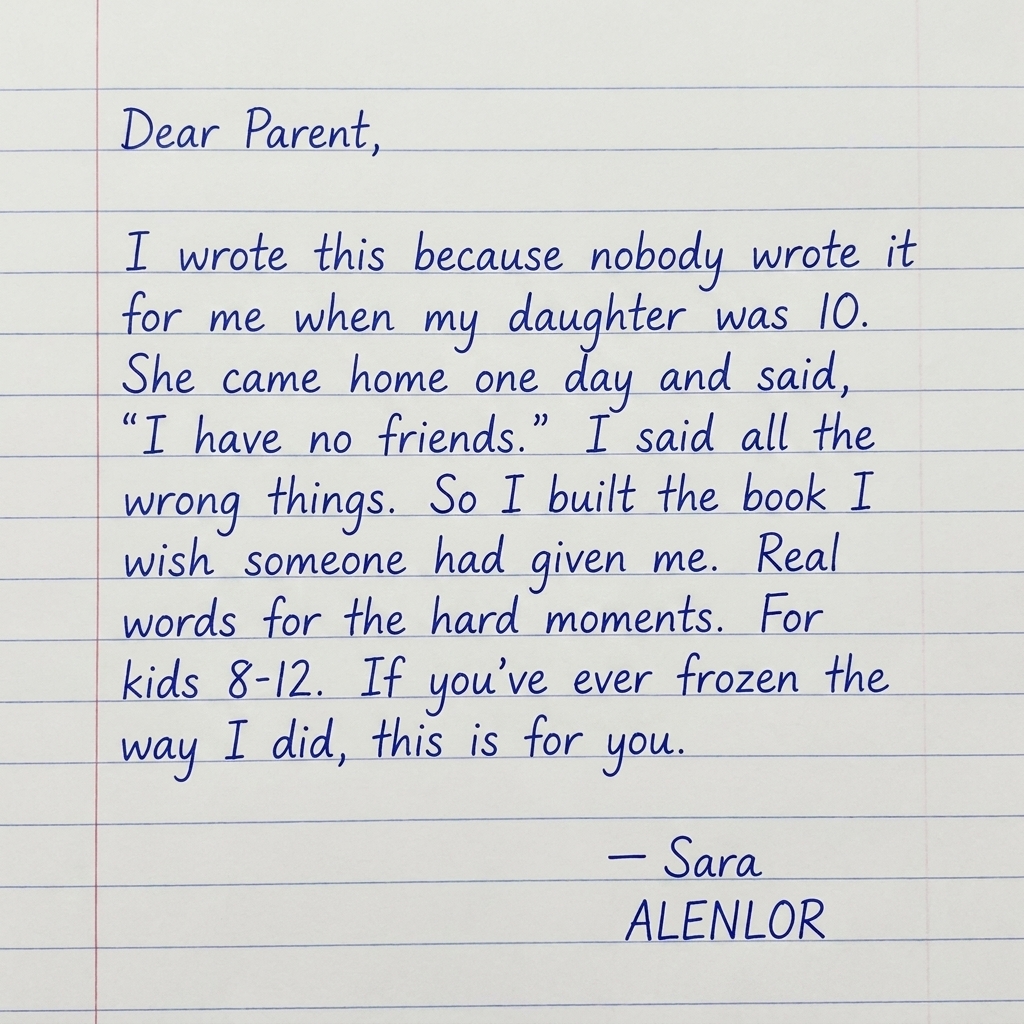 Dear Parent,
I wrote this because nobody wrote it
for me when my daughter was 10.
She came home one day and said,
“I have no friends.” I said all the
wrong things. So I built the book I
wish someone had given me. Real
words for the hard moments. For
kids 8-12. If you’ve ever frozen the
way I did, this is for you.
— Sara
ALENLOR